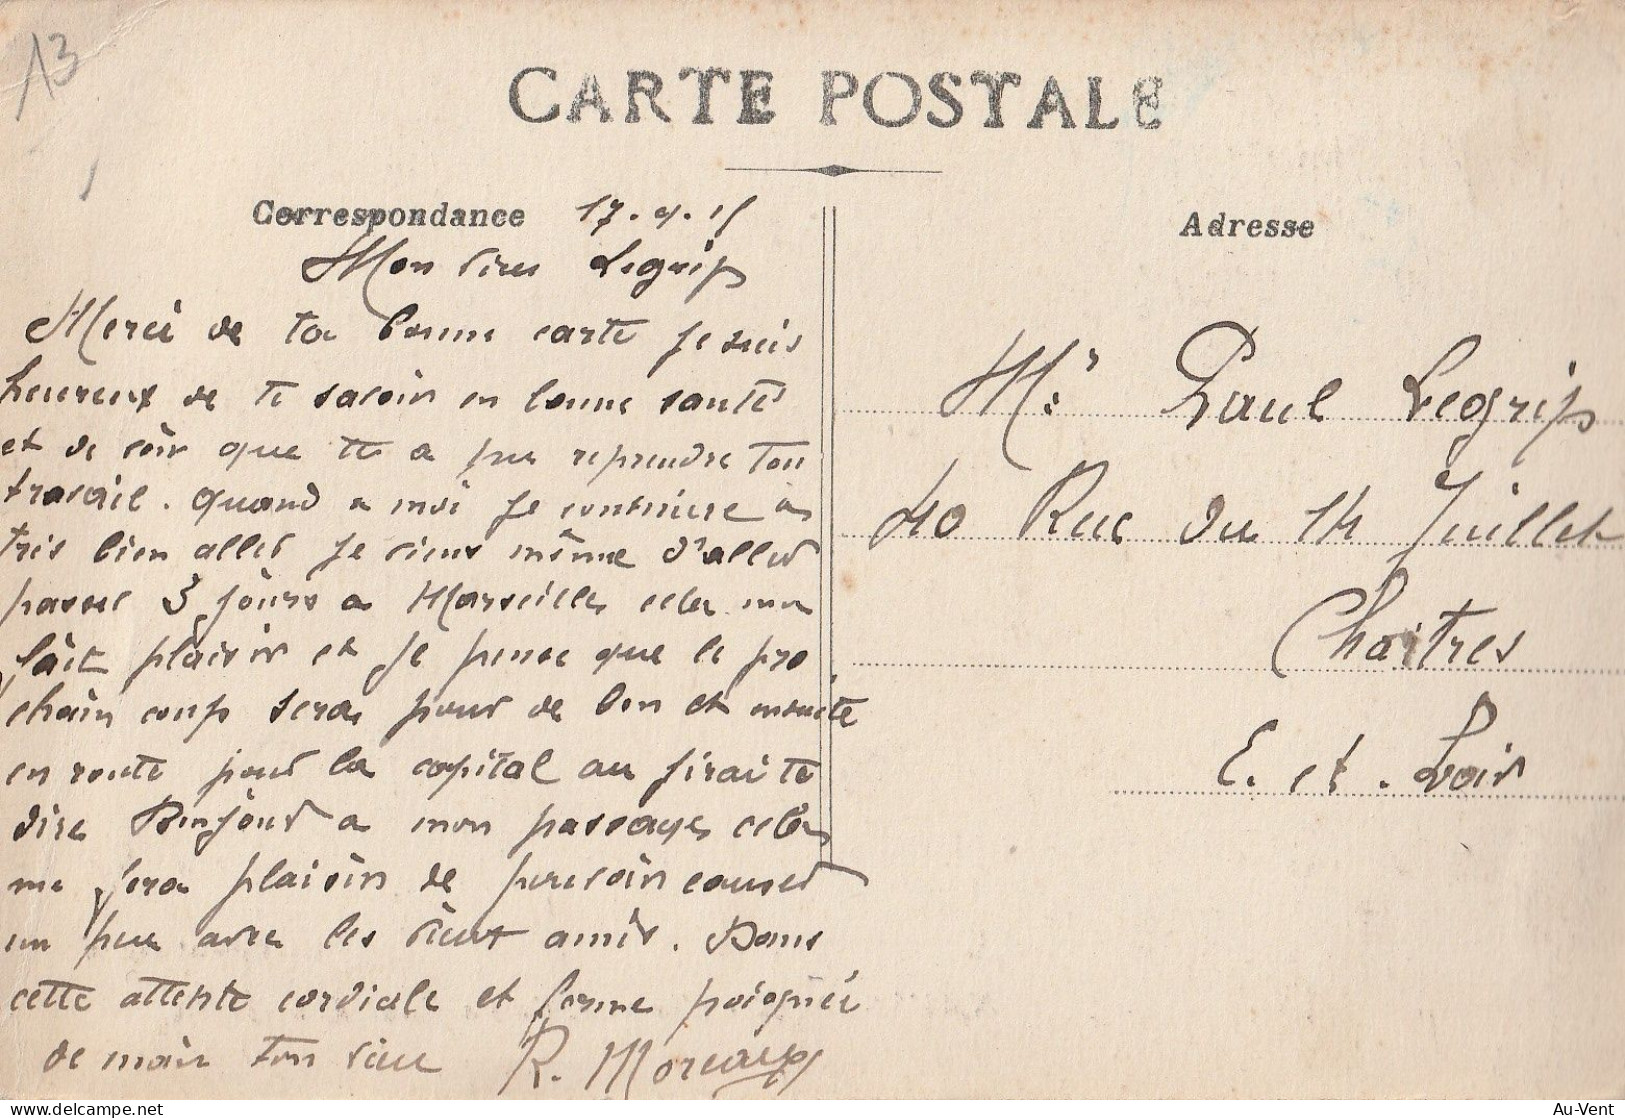 13
CARTE POSTALE
Correspondance 17.9.15
Mon vieu Legrip
Merci de ta bonne carte je suis
heureux de te savoir en bonne santé
et de voir que tu a pu reprendre ton
travail. Quand a moi je continure a
tres bien aller je viens même d'aller
passer 3 jours a Marseilles cela ma
fait plaisir et je pense que le pro
chain coup sera pour de bon et ensuite
en route pour la capital au jirai te
dire Bonjour a mon passage cela
me fera plaisir de pouvoir causer
un peu avec les vieux amis. Dans
cette attente cordiale et bonne poignée
de main ton vieu R. Moreau
Adresse
Mr. Paul Legrip
40 Rue du 14 Juillet
Chartres
E. et. Loir
Au-Vent